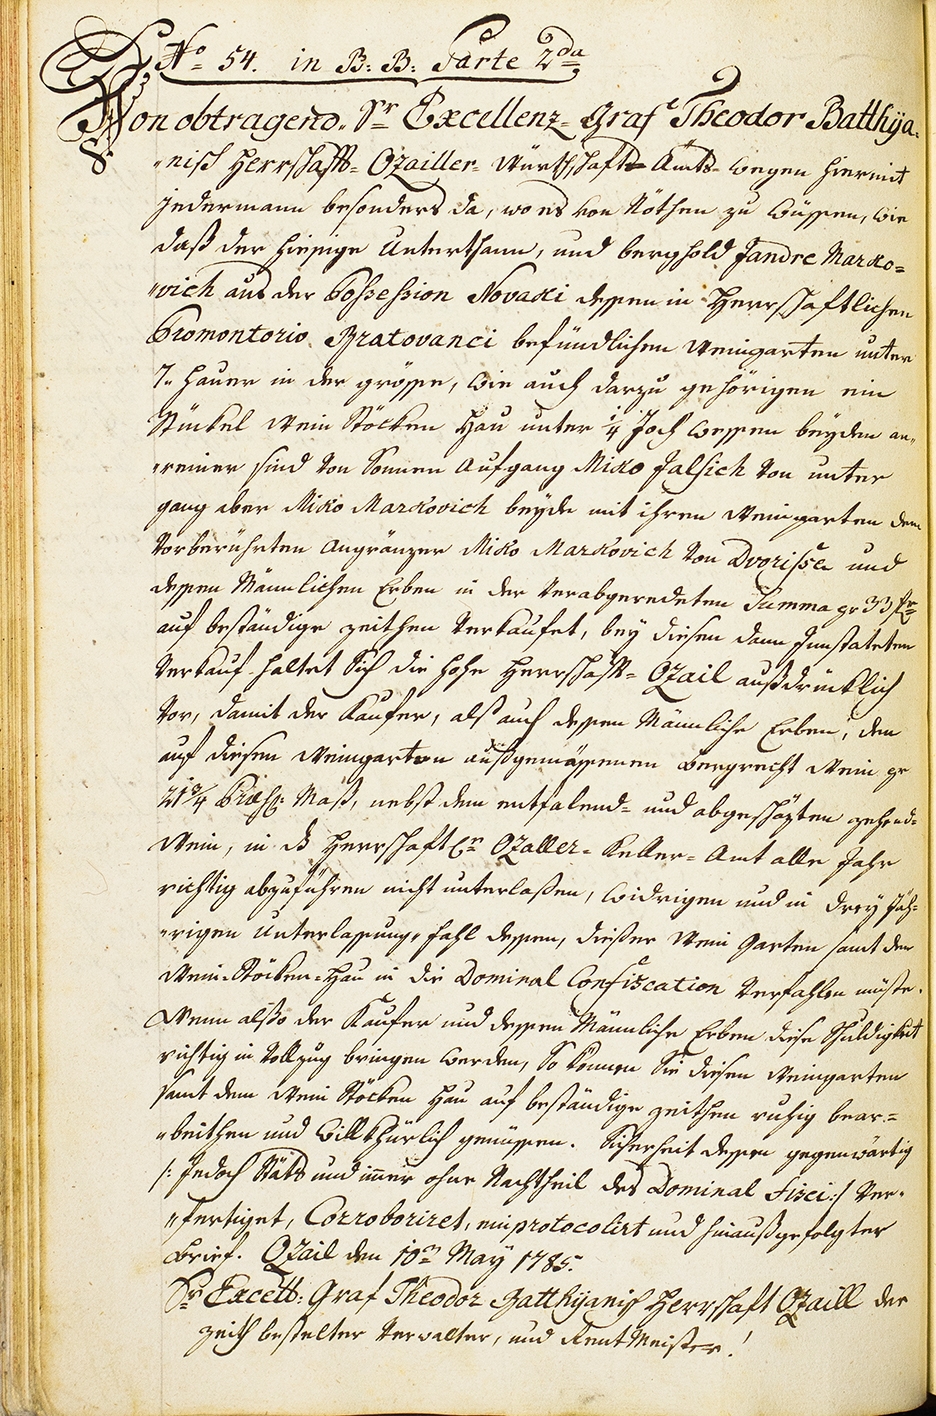 No 54. in B: B: Parte 2da
Von obtragend. Sr Excellenz- Graf Theodor Batthÿa„
„nisch Herrschafts- Ozailler- Würthschafts Amts- wegen hiermit
jedermann besonders da, wo es von Nöthen zu wüssen, wie
daß der hiesige Unterthann, und berghold Jandre Marko=
„vich aus der Possession Novaki dessen in Herrschaftlichen
Promontorio Bratovanci befündlichen Weingarten unter
7„ Hauer in der grösse, wie auch darzu gehörigen ein
Stückel Wein Stöcken Hau unter ¼ Joch wessen beyden an„
„reiner sind von Sonnen Aufgang Miko Jalsich von unter
gang aber Miko Markovich beyde mit ihren Weingarten dem
Vorberührten Angränzer Miko Markovich von Dvorisce und
dessen Männlichen Erben in der verabgeredeten Summa pr 33 fr
auf beständige zeithen verkaufet, bey diesen dann
Verkauf haltet Sich die hohe Herrschaft- Ozail außdrücklich
vor, damit der Kaufer, als auch dessen Männliche Erben, den
auf diesen Weingarten außgemässenen Bergrecht Wein pr
21¾ Maß, nebst dem entfalend- und abgeschäzten zehend-
Wein, in Herrschaftln Ozaller- Keller- Amt alle Jahr
richtig abzuführen nicht unterlaßen, widrigen und in drey Jäh-
„rigen Unterlassungs fahl dessen, dießer Wein Garten samt den
Wein-Stöcken-Hau in die Dominal Confiscation verfahlen müste.
Wenn alßo der Kaufer und dessen Männliche Erben diese Schuldigkeit
richtig in Vollzug bringen werden, So können Sie diesen Weingarten
samt dem Wein Stöcken Hau auf beständige zeithen ruhig bear-=
„beithen und Willkhürlich genüssen. Sicherheit dessen gegenwärtig
/: Jedoch Stäts und imer ohne Nachtheil des Dominal Fisci :/ Ver-
„fertiget, Corroboriret, einprotocolirt und hinaußgefolgter
Brief. Ozail den 10n May 1785.
Sr Excell: Graf Theodor Batthÿanisch Herrschaft Ozaill der
zeith bestelter Verwalter, und RentMeister!